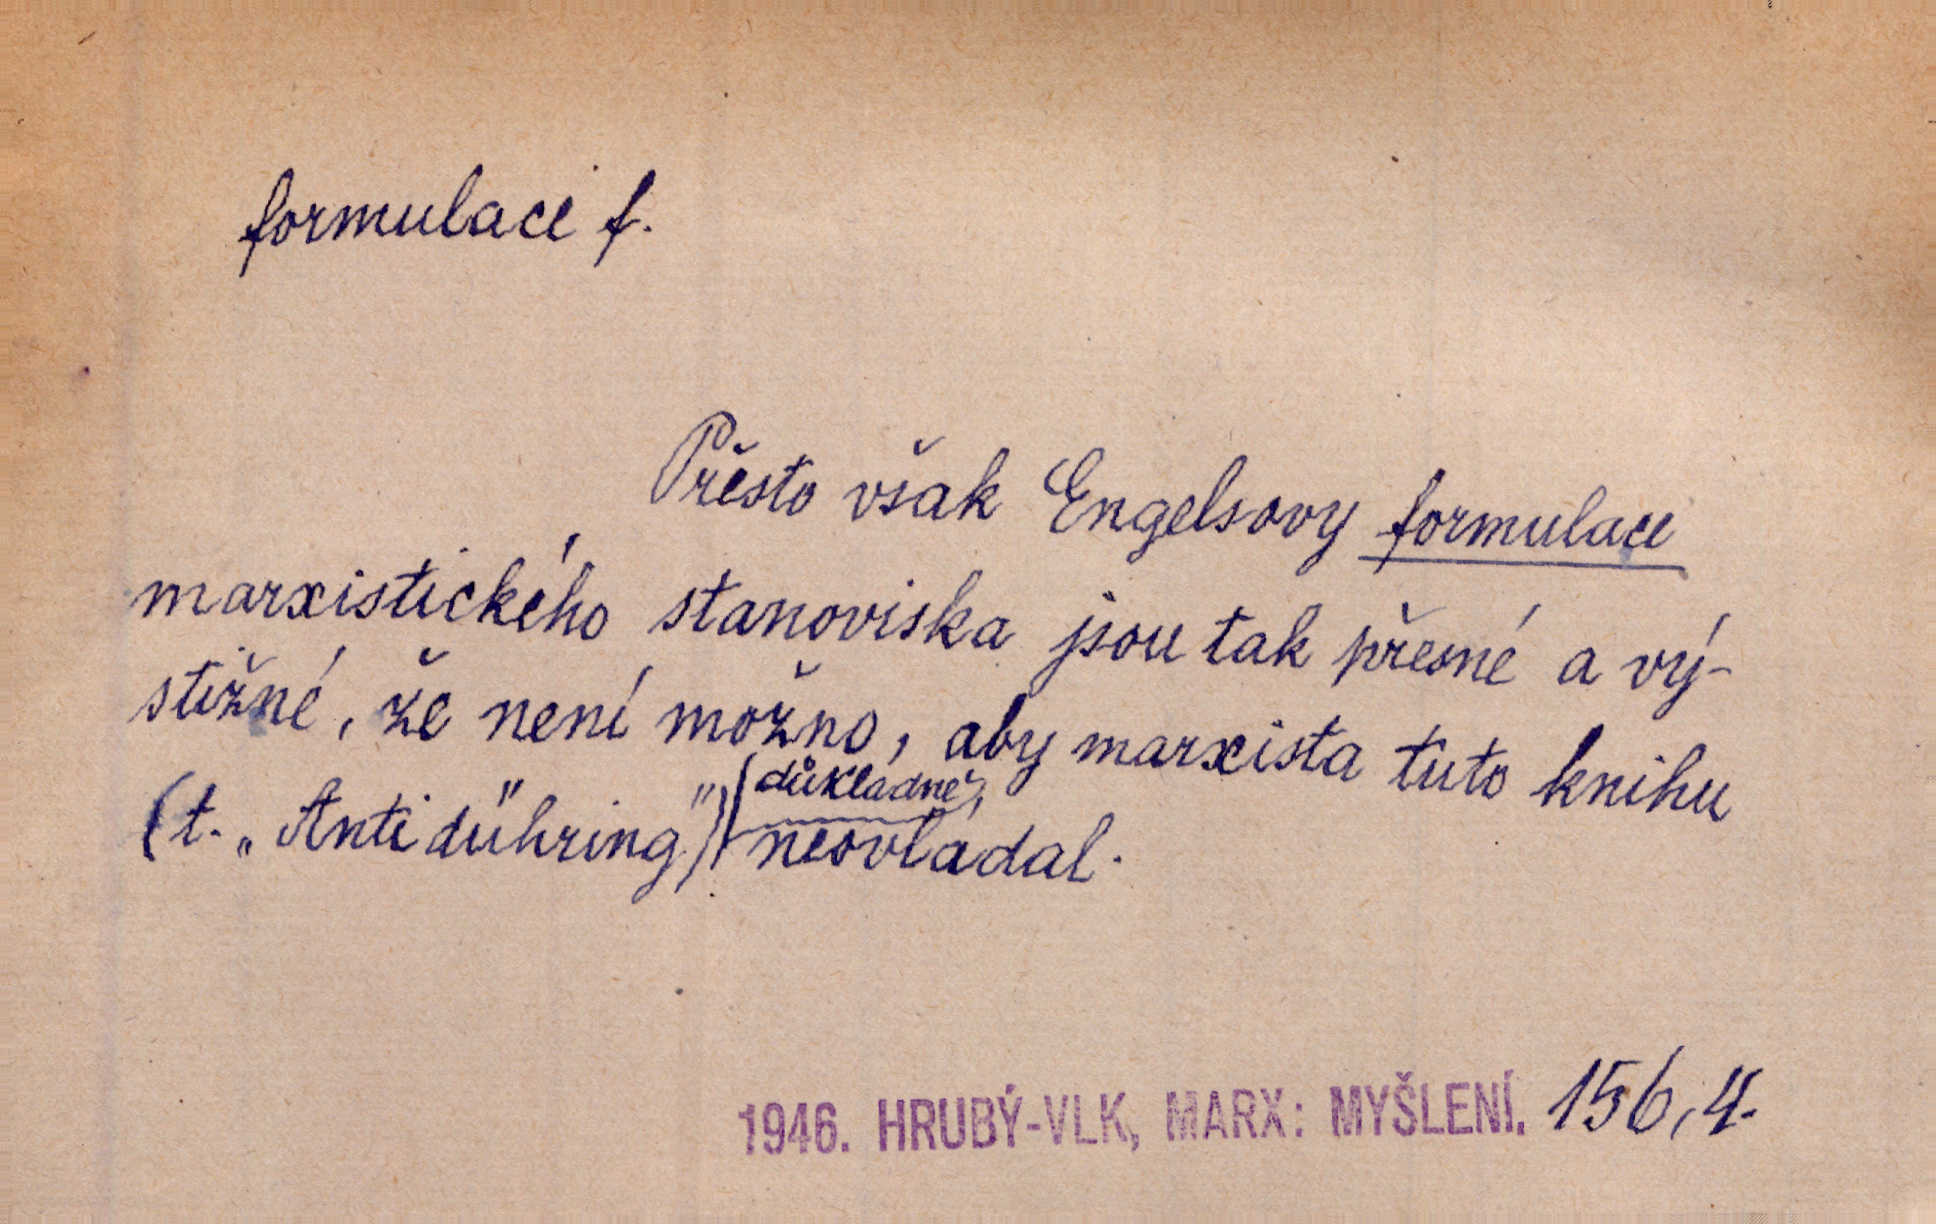 formulace f.
Přesto však Engelsovy formulace
marxistického stanoviska jsou tak přesné a vý-
stižné, že není možno, aby marxista tuto knihu
(t. „Antidühring") důkladně neovládal.
1946. HRUBÝ-VLK, MARX: MYŠLENÍ. 156,4.